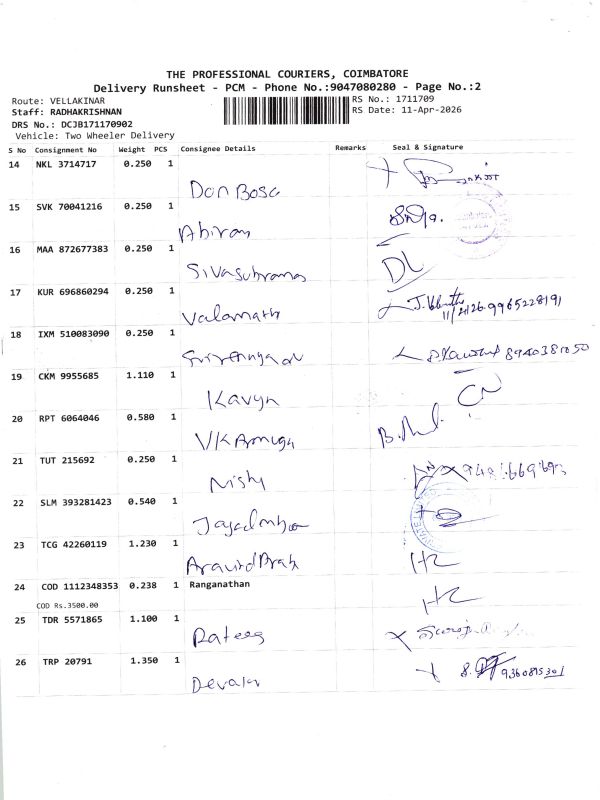 THE PROFESSIONAL COURIERS, COIMBATORE
Delivery Runsheet - PCM - Phone No.:9047080280 - Page No.:2
Route: VELLAKINAR
RS No.: 1711709
Staff: RADHAKRISHNAN
RS Date: 11-Apr-2026
DRS No.: DCJB171170902
Vehicle: Two Wheeler Delivery
S No Consignment No Weight PCS Consignee Details Remarks Seal & Signature
14 NKL 3714717 0.250 1
Don Bosc
15 SVK 70041216 0.250 1
Abiram
16 MAA 872677383 0.250 1
Sivasubrama
DL
17 KUR 696860294 0.250 1
Valarmath
11/4/26 9965228191
18 IXM 510083090 0.250 1
8940381050
19 CKM 9955685 1.110 1
Kavya
20 RPT 6064046 0.580 1
VK Amuga
21 TUT 215692 0.250 1
Nish
22 SLM 393281423 0.540 1
23 TCG 42260119 1.230 1
Aravind Prak
24 COD 1112348353 0.238 1 Ranganathan
COD Rs.3500.00
25 TDR 5571865 1.100 1
Rateeq
26 TRP 20791 1.350 1
Devaki